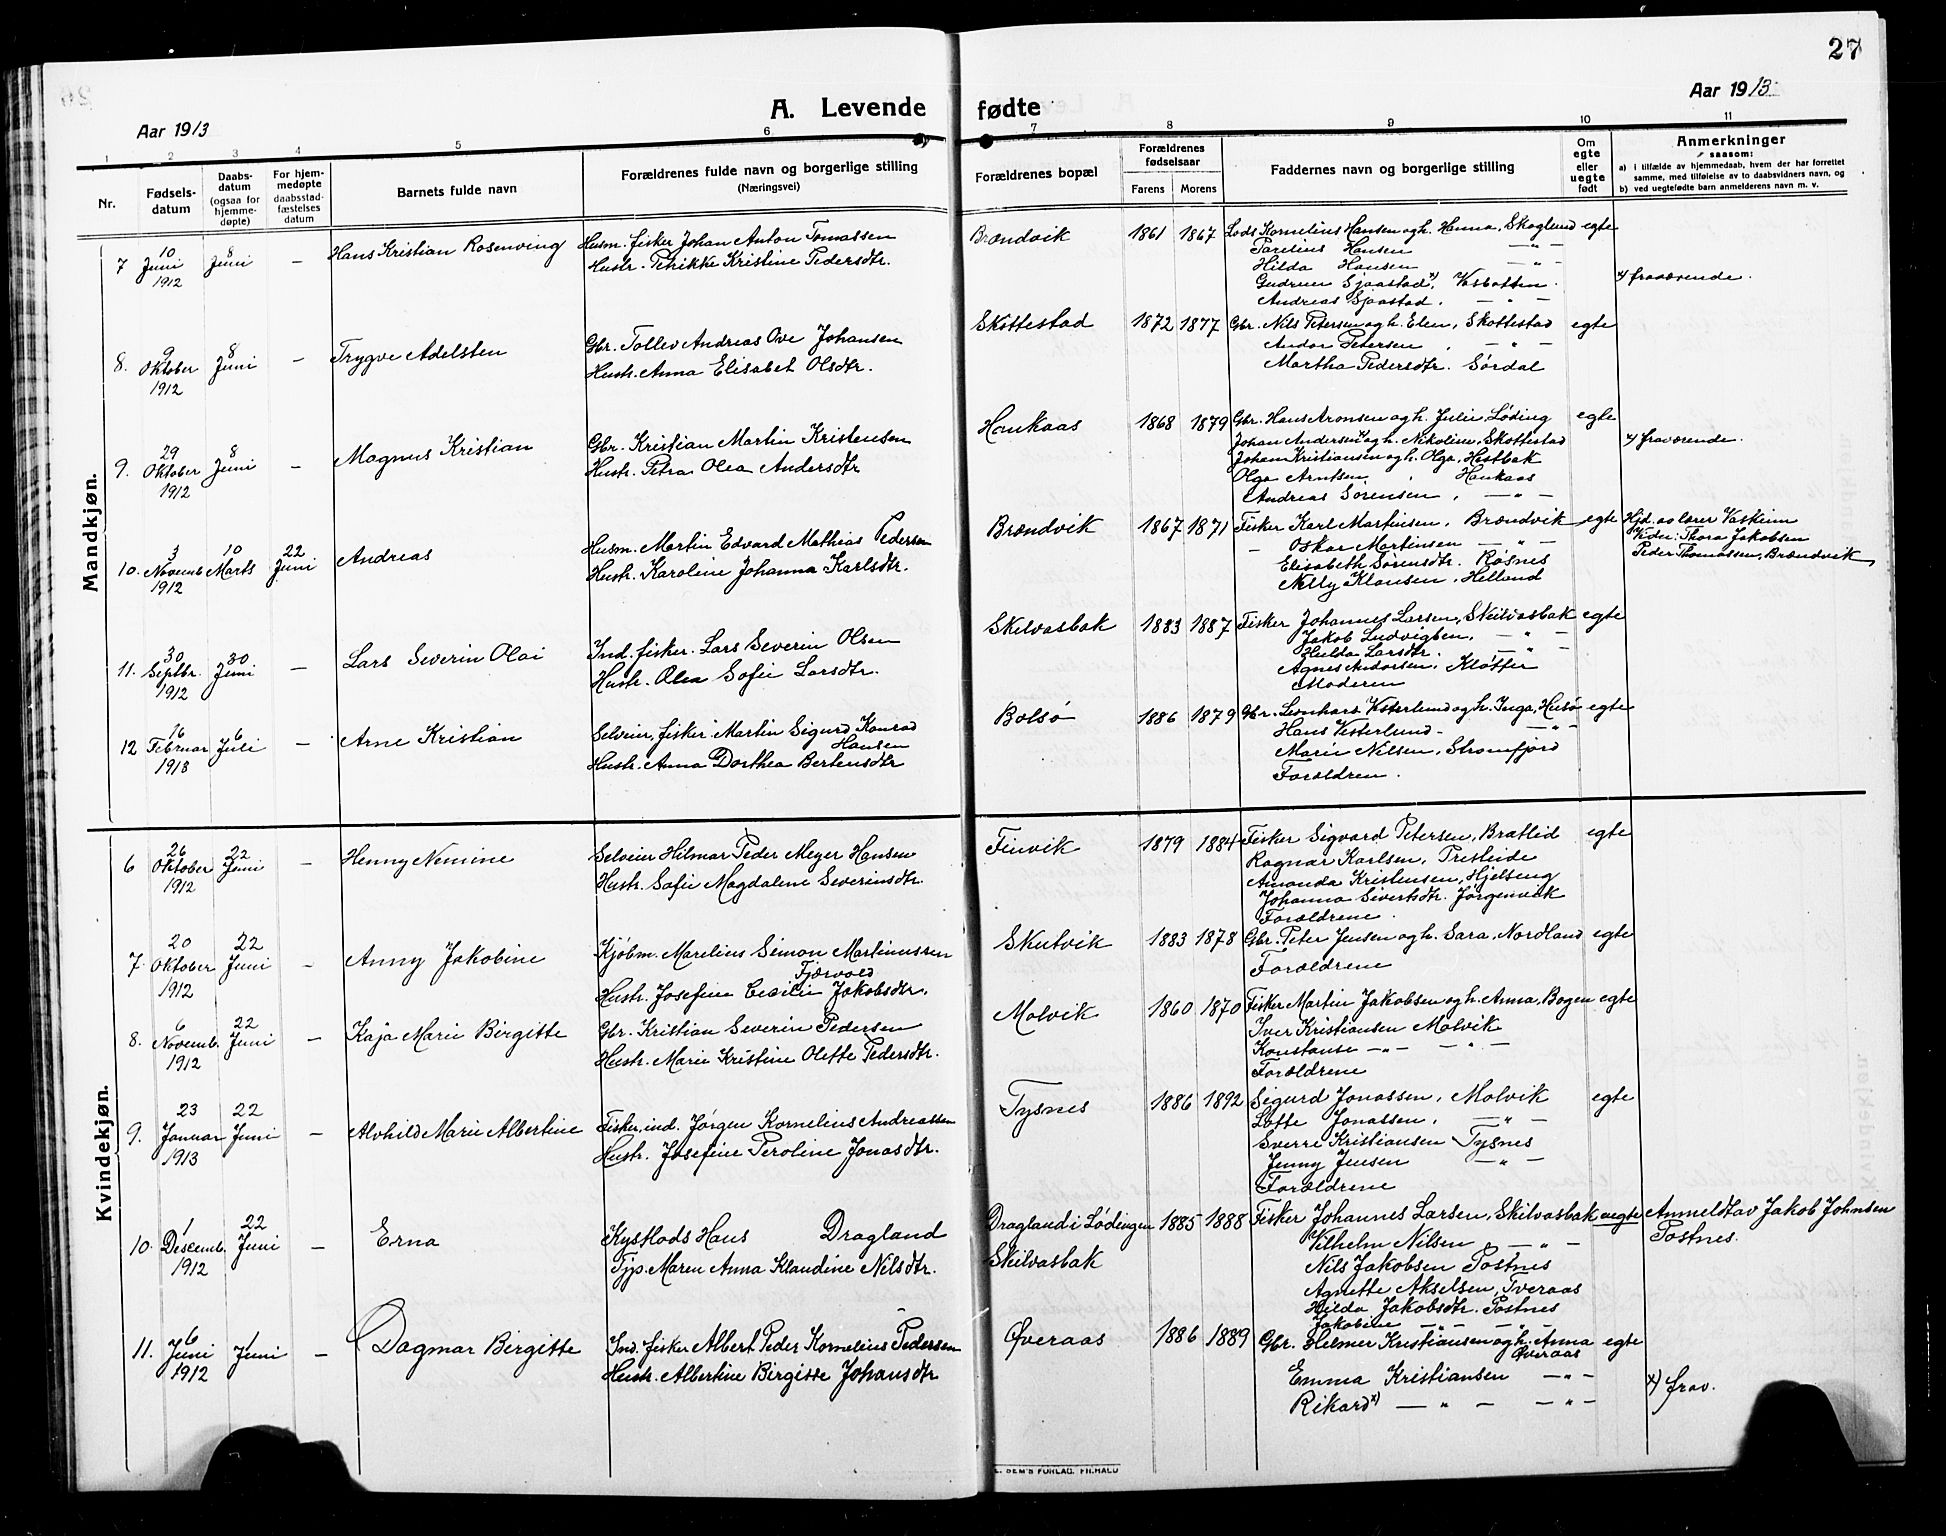 27
Aar 1913
A. Levende fødte
Aar 1913
1 2 3 4 5 6 7 8 9 10 11
Nr.
Fødsels-datum
Daabs-datum (ogsaa for hjemme-døpte)
For hjem-medøpte daabsstad-fæstelses datum
Barnets fulde navn
Forældrenes fulde navn og borgerlige stilling
(Næringsvei)
Forældrenes bopæl
Forældrenes fødselsaar
Farens Morens
Faddernes navn og borgerlige stilling
Om egte eller uegte født
Anmerkninger
saasom:
a) i tilfælde av hjemmedaab, hvem der har forrettet
samme, med tilføielse av to daabsvidners navn, og
b) ved uegtefødte barn anmelderens navn m. v.
Mandkjøn.
7 10 Juni 1912 8 Juni — Hans Kristian Rosenving
Husm. fisker Johan Anton Tomassen
Hustr. Petrikke Kristine Pedersdtr.
Brændvik 1861 1867 Lods Kornelius Hansen og h. Hanna, Skoglund egte
Parelius Hansen — " —
Hilda Hansen — " —
Gudrun Sjaastad x), Vasbotten.
Andreas Sjaastad. — " —
x) fraværende.
8. 9 Oktober 1912 8 Juni — Trygve Adelsten
Gbr. Tollev Andreas Ove Johansen
Hustr. Anna Elisabet Olsdtr.
Skottestad 1872 1877 Gbr. Nils Petersen og h. Elen, Skottestad egte
Andor Petersen, — " —
Martha Pedersdtr. Sørdal
9. 29 Oktober 1912 8 Juni — Magnus Kristian
Gbr. Kristian Martin Kristensen
Hustr. Petra Olea Andersdtr
Haukaas 1868 1879 Gbr. Hans Aronsen og h. Julie, Løding egte
Johan Andersen x) og h. Nikoline, Skottestad
Johan Kristiansen og h. Olga, Hestbak
Olga Arntsen, Haukaas
Andreas Sørensen, — " —
x) fraværende.
10. 3 Novemb. 1912 10 Marts 22 Juni Andreas
Husm. Martin Edvard Mathias Pedersen
Hustr. Karoline Johanna Karlsdtr.
Brændvik 1867 1871 Fisker Karl Martinsen, Brændvik egte
— Oskar Martinsen — " —
Elisabeth Sørensdtr. Røsnes
Nelly Klausen, Helland
Hjd. av lærer Vaskinn
Vidn: Thora Jakobsen
Peder Thomassen, Brændvik
11. 30 Septbr. 1912 30 Juni — Lars Severin Olai
Ind. fisker. Lars Severin Olsen
Hustr. Olea Sofie Larsdtr.
Skilvasbak 1883 1887 Fisker Johannes Larsen, Skilvasbak egte
Jakob Ludvigsen, — " —
Hulda Larsdtr. — " —
Agnes Andorsen, Kløfter
Moderen
12 16 Februar 1913 6 Juli — Arne Kristian
Selveier, fisker Martin Sigurd Konrad
Hansen
Hustr. Anna Dorthea Bertensdtr
Bolsø 1886 1879 Gbr. Leonhars Vesterlund og h. Inga, Husø egte
Hans Vesterlund — " —
Marie Nilsen, Strømfjord
Forældren.
Kvindekjøn.
6 26 Oktober 1912 22 Juni — Henny Nemine
Selveier Hilmar Peder Meyer Hansen
Hustr. Sofie Magdalene Severinsdtr.
Finvik 1879 1884 Fisker Sigvard Petersen, Bratlid egte
Ragnar Karlsen, Presteide
Amanda Kristensen, Hjelseng
Johanna Sivertsdtr. Jørgenvik
Forældrene.
7 20 Oktober 1912 22 Juni — Anny Jakobine
Kjøbm. Marelius Simon Martinussen
Fjærvold
Hustr. Josefine Cecilie Jakobsdtr.
Skutvik 1883 1878 Gbr. Peter Jensen og h. Sara, Nordland egte
Forældrene
8. 6 Novemb. 1912 22 Juni — Kaja Marie Birgitte
Gbr. Kristian Severin Pedersen
Hustr. Marie Kristine Olette Pedersdtr.
Molvik 1860 1870 Fisker Martin Jakobsen og h. Anna, Bogen egte
Iver Kristiansen Molvik
Konstanse — " — — " —
Forældrene
9. 23 Januar 1913 22 Juni — Alvhild Marie Albertine
Fisker, ind. Jørgen Kornelius Andreassen
Hustr. Josefine Peroline Jonasdtr.
Tysnes 1886 1892 Sigurd Jonassen, Molvik egte
Lotte Jonassen, — " —
Sverre Kristiansen Tysnes
Jenny Jensen — " —
Forældrene
10. 1 Descemb. 1912 22 Juni — Erna
Kystlods Hans Dragland
Tjp. Maren Anna Klaudine Nilsdtr.
Dragland i Lødingen 1885 1888 Fisker Johannes Larsen, Skilvasbak uegte Anmeldt av Jakob Johnsen
Skilvasbak
Vilhelm Nilsen, — " — Postnes.
Nils Jakobsen Postnes
Agnethe Akselsen, Tveraas
Hilda Jakobsdtr. Postnes
Jakobine — " — — " —
11. 6 Juni 1912 1 Juni — Dagmar Birgitte
Ind. fisker Albert Peder Kornelius Pedersen
Hustr. Albertine Birgitte Johansdtr
Øveraas 1886 1889 Gbr. Helmer Kristiansen og h. Anna egte
Øveraas
Emma Kristiansen — " —
Rikard x) — " — — " —
x) frav.
SEM'S FORLAG, FR.HALD